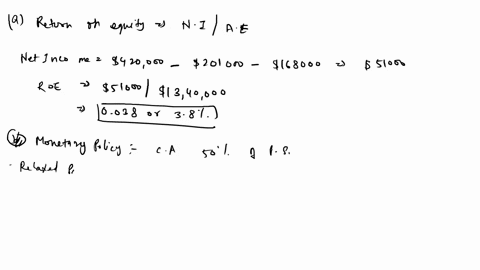 (a) Return on equity => N.I / A.E
Net Income = $420,000 - $201000 - $168000 => $51000
ROE => $51000 / $13,40,000
=> 0.038 or 3.8%.
Monetary Policy :- C.A 50% of P.S.
· Relaxed P